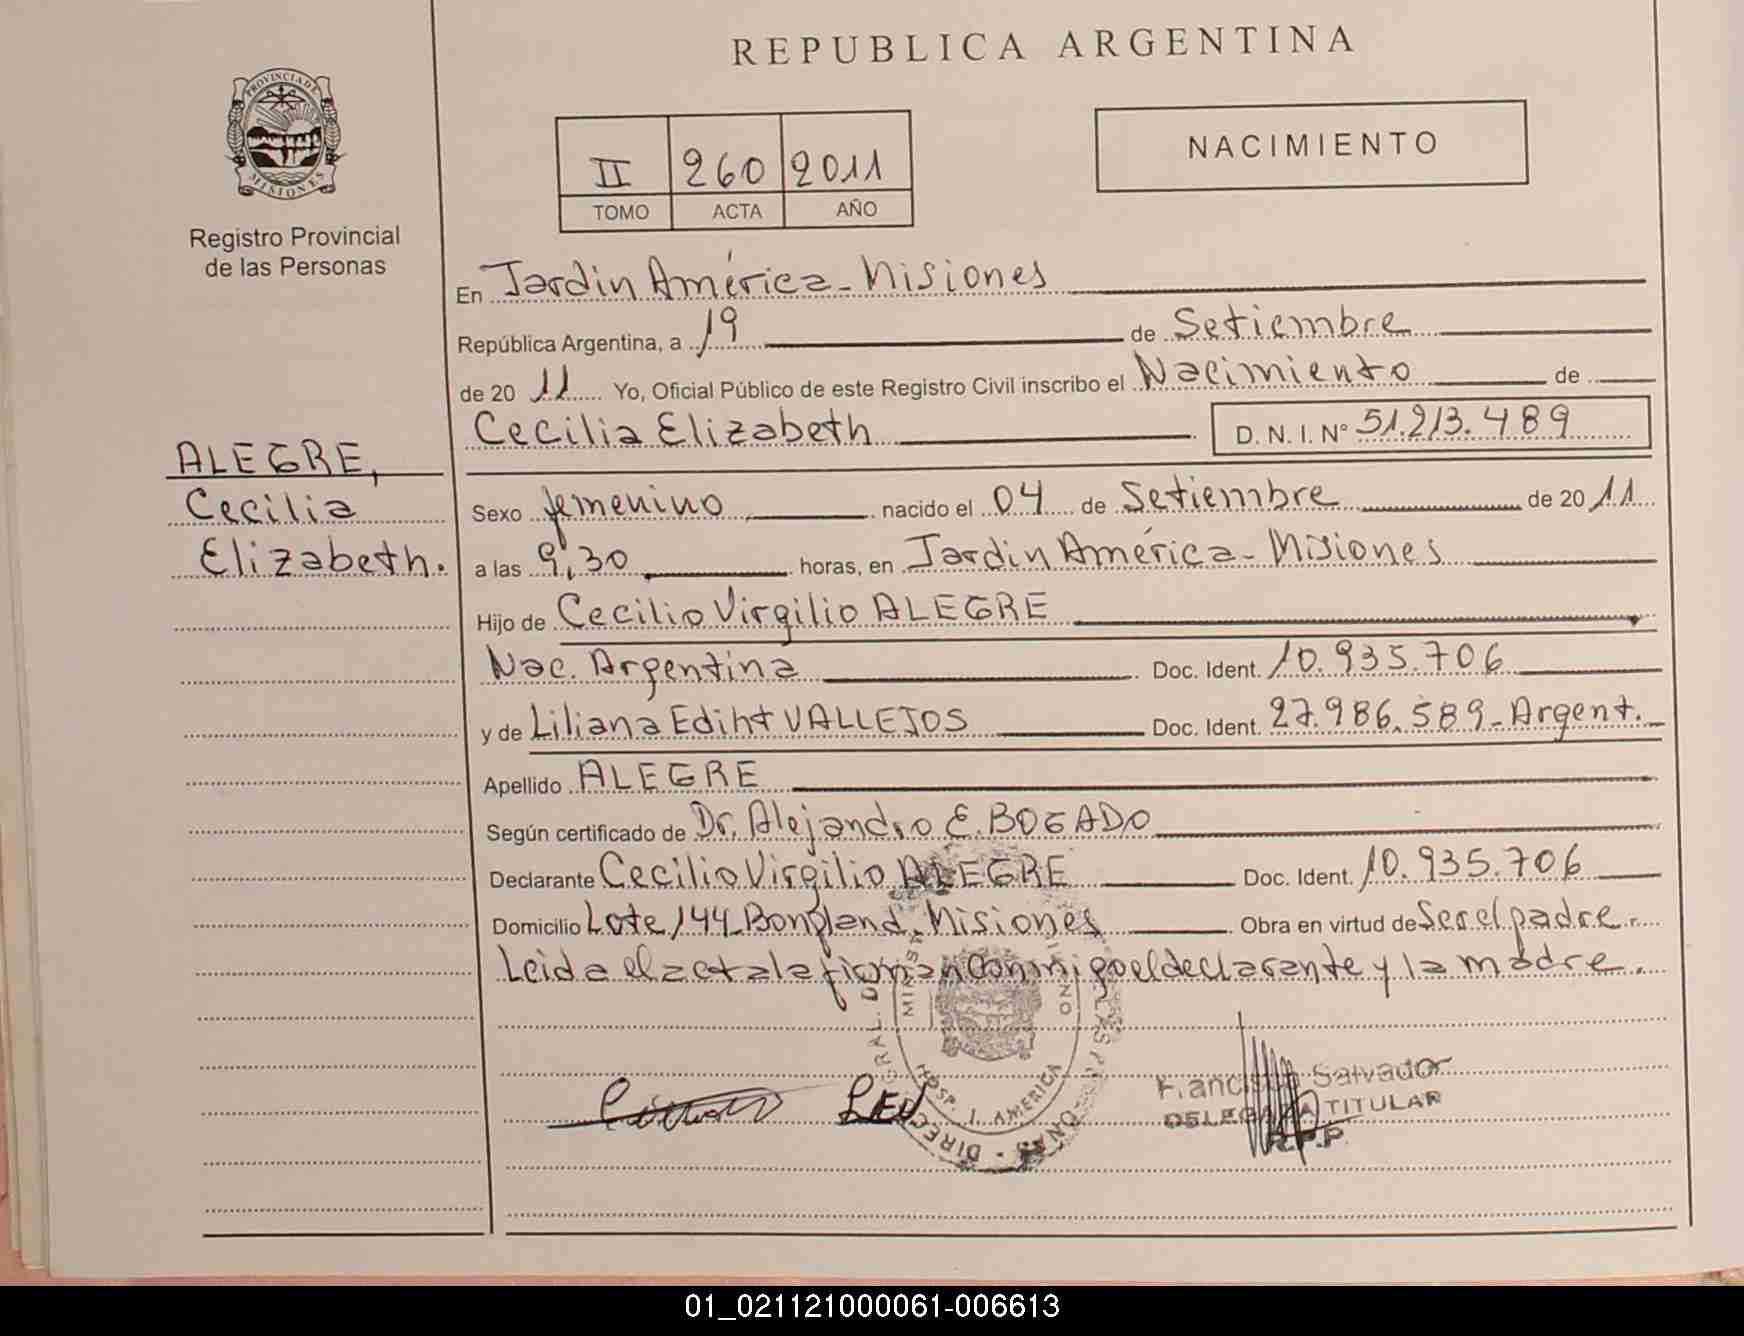 REPUBLICA ARGENTINA
PROVINCIA DE MISIONES
Registro Provincial
de las Personas
II 260 2011
TOMO ACTA AÑO
NACIMIENTO
En Jardin América - Misiones
República Argentina, a 19 de Setiembre
de 20 11 Yo, Oficial Público de este Registro Civil inscribo el Nacimiento de
Cecilia Elizabeth D. N. I. N° 51.213.489
ALEGRE,
Cecilia
Elizabeth.
Sexo femenino nacido el 04 de Setiembre de 20 11
a las 9,30 horas, en Jardin América - Misiones
Hijo de Cecilio Virgilio ALEGRE
Nac. Argentina Doc. Ident. 10.935.706
y de Liliana Ediht VALLEJOS Doc. Ident. 27.986.589 - Argent.
Apellido ALEGRE
Según certificado de Dr. Alejandro E. BOGADO
Declarante Cecilio Virgilio ALEGRE Doc. Ident. 10.935.706
Domicilio Lote 144 - Bonpland - Misiones Obra en virtud de Ser el padre
Leida el acta la firman conmigo el declarante y la madre.
HOSP. J. AMERICA
LEV
Salvador
TITULAR
R.P.P.
01_021121000061-006613